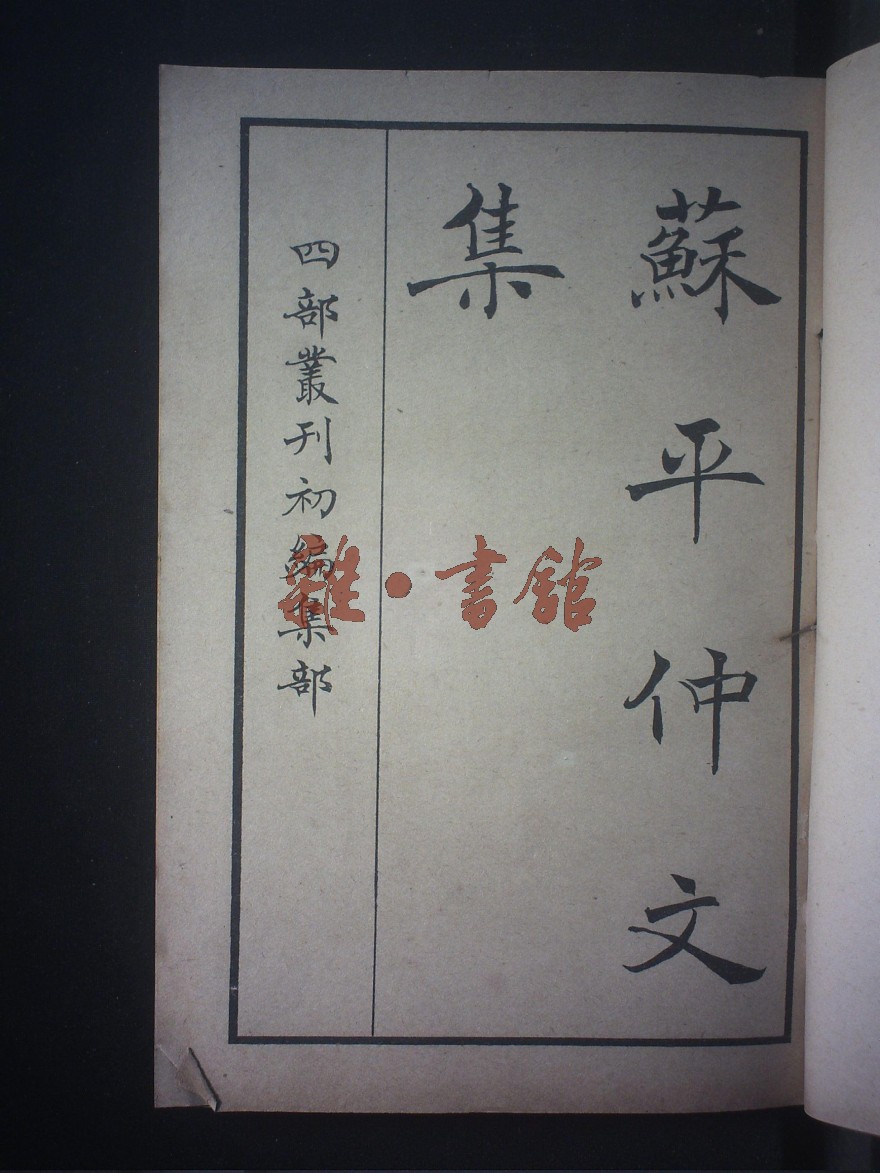 蘇平仲文
集
四部叢刊初編集部
雜·書館